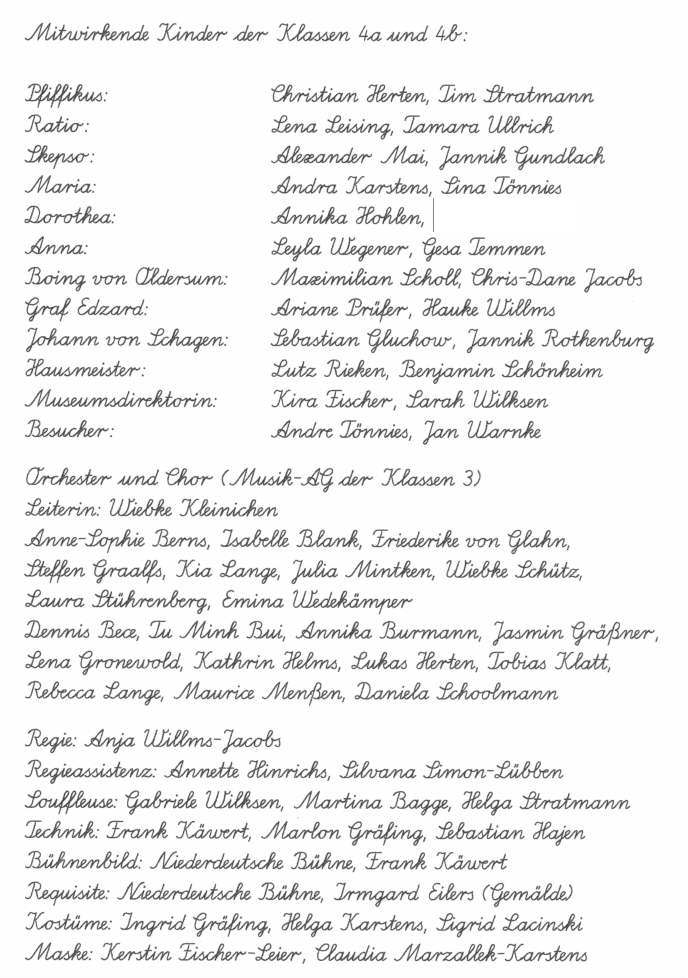 Mitwirkende Kinder der Klassen 4a und 4b:
Pfiffikus: Christian Herten, Tim Stratmann
Ratio: Lena Leising, Tamara Ullrich
Skepso: Alexander Mai, Jannik Gundlach
Maria: Andra Karstens, Lina Tönnies
Dorothea: Annika Hohlen,
Anna: Leyla Wegener, Gesa Temmen
Boing von Oldersum: Maximilian Scholl, Chris-Dane Jacobs
Graf Edzard: Ariane Prüfer, Hauke Willms
Johann von Schagen: Sebastian Gluchow, Jannik Rothenburg
Hausmeister: Lutz Rieken, Benjamin Schönheim
Museumsdirektorin: Kira Fischer, Sarah Wilksen
Besucher: Andre Tönnies, Jan Warnke
Orchester und Chor (Musik-AG der Klassen 3)
Leiterin: Wiebke Kleinichen
Anne-Sophie Berns, Isabelle Blank, Friederike von Glahn,
Steffen Graalfs, Kia Lange, Julia Mintken, Wiebke Schütz,
Laura Stührenberg, Emina Wedekämper
Dennis Bece, Tu Minh Bui, Annika Burmann, Jasmin Gräßner,
Lena Gronewold, Kathrin Helms, Lukas Herten, Tobias Klatt,
Rebecca Lange, Maurice Menßen, Daniela Schoolmann
Regie: Anja Willms-Jacobs
Regieassistenz: Annette Hinrichs, Silvana Simon-Lübben
Souffleuse: Gabriele Wilksen, Martina Bagge, Helga Stratmann
Technik: Frank Käwert, Marlon Gräfing, Sebastian Hajen
Bühnenbild: Niederdeutsche Bühne, Frank Käwert
Requisite: Niederdeutsche Bühne, Irmgard Eilers (Gemälde)
Kostüme: Ingrid Gräfing, Helga Karstens, Sigrid Lacinski
Maske: Kerstin Fischer-Leier, Claudia Marzallek-Karstens